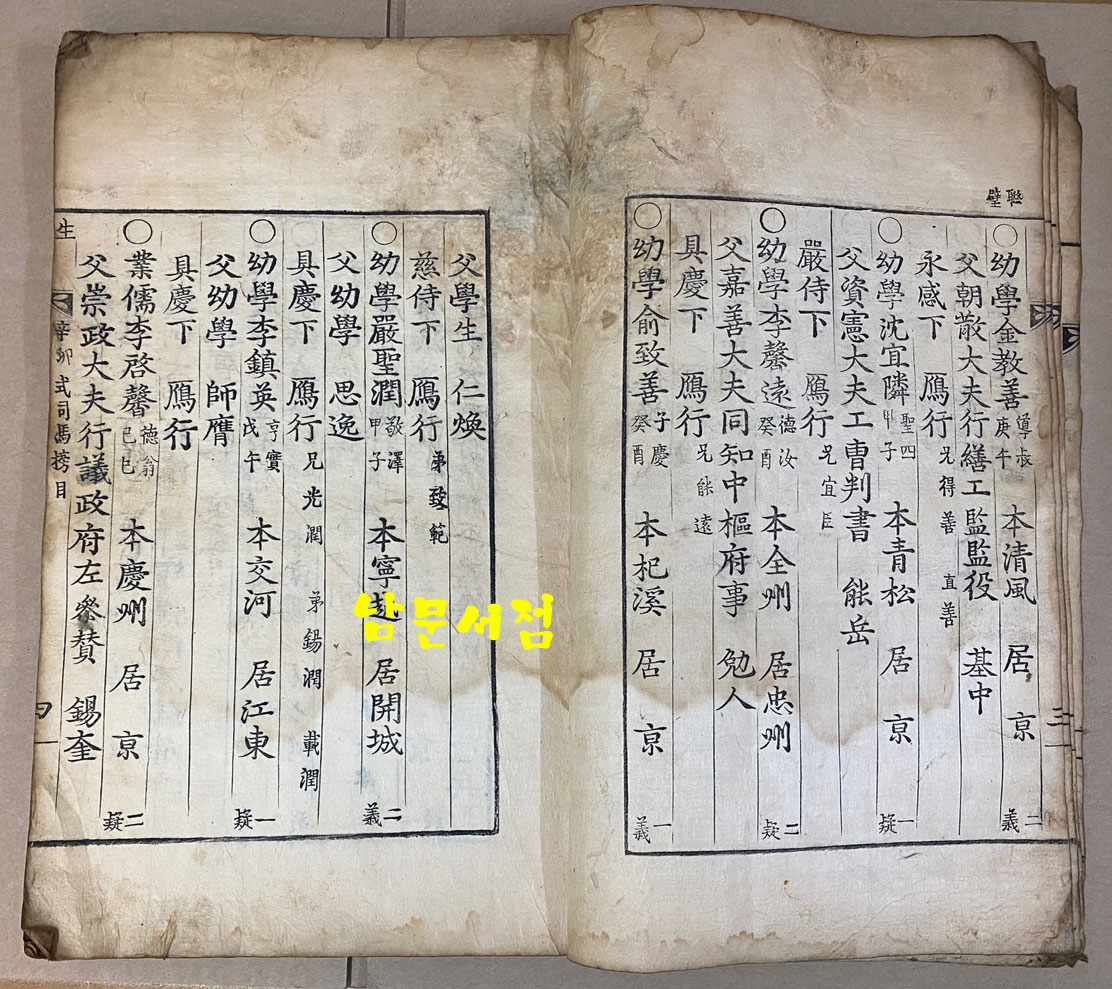 聯
璧
○幼學金教善 庚午 本清風 居京 二義
父朝散大夫行繕工監監役 基中
永感下 鴈行 兄得善 直善
○幼學沈宜隣 聖四 甲子 本青松 居京 一疑
父資憲大夫工曹判書 能岳
嚴侍下 鴈行 兄宜臣
○幼學李馨遠 德汝 癸酉 本全州 居忠州 二疑
父嘉善大夫同知中樞府事 勉人
具慶下 鴈行 兄能遠
○幼學俞致善 子慶 癸酉 本杞溪 居京 一義
父學生 仁煥
慈侍下 鴈行 弟致範
○幼學嚴聖潤 敬澤 甲子 本寧越 居開城 二義
父幼學 思逸
具慶下 鴈行 兄光潤 弟錫潤 載潤
○幼學李鎮英 亨實 戊午 本交河 居江東 一疑
父幼學 師膺
具慶下 鴈行
○業儒李啓馨 德翁 己巳 本慶州 居京 二疑
父崇政大夫行議政府左參贊 錫奎
生
辛卯式司馬榜目
四一
남문서점